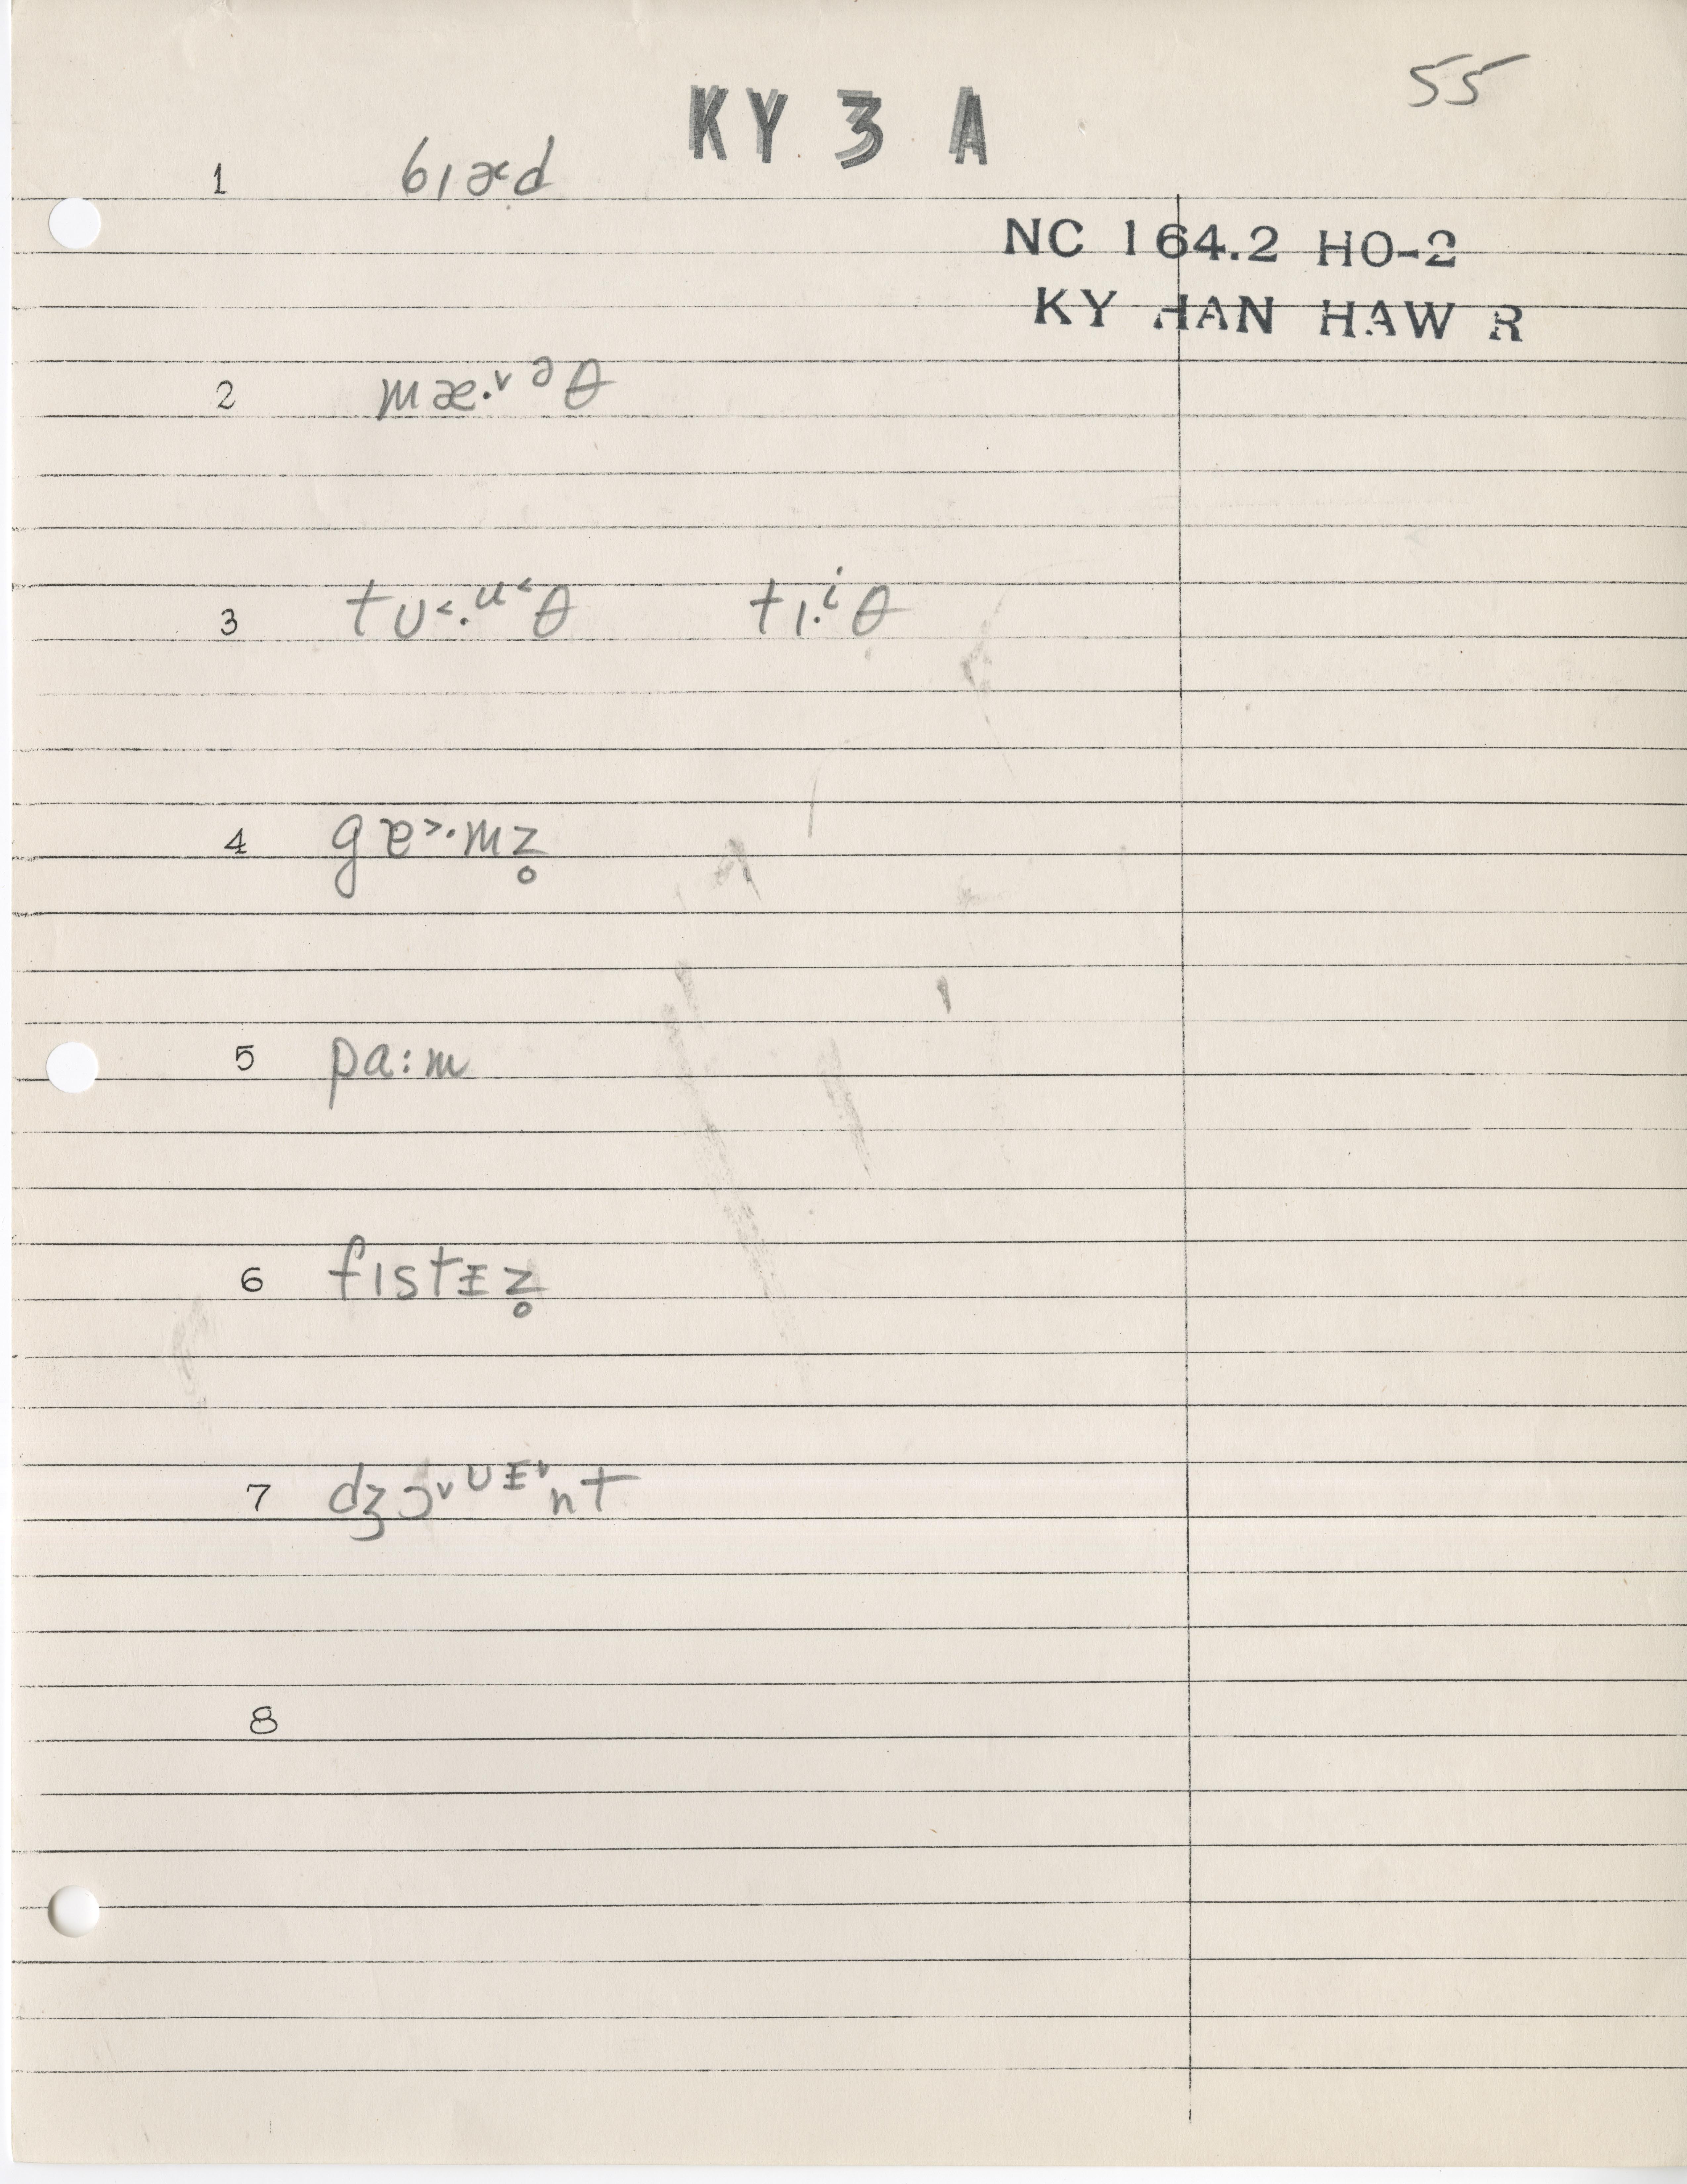 55
KY 3 A
1 bɪə˂d
NC 164.2 HO-2
KY HAN HAW R
2 mæ·˅ᵊθ
3 tʊ˂·ᵘ˂θ tɪ·ⁱθ
4 gɐ˃·mz̥
5 pɑ:m
6 fɪstɪ̵z̥
7 dʒɔ˅ᶷᶧ˅nt
8